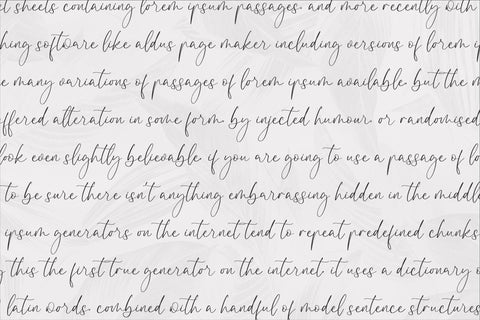 et sheets containing lorem ipsum passages, and more recently with
hing software like aldus page maker including versions of lorem ip
e many variations of passages of lorem ipsum available, but the m
ffered alteration in some form, by injected humour, or randomised
look even slightly believable. if you are going to use a passage of lo
to be sure there isn't anything embarrassing hidden in the middle
ipsum generators on the internet tend to repeat predefined chunks
g this the first true generator on the internet. it uses a dictionary o
latin words, combined with a handful of model sentence structures